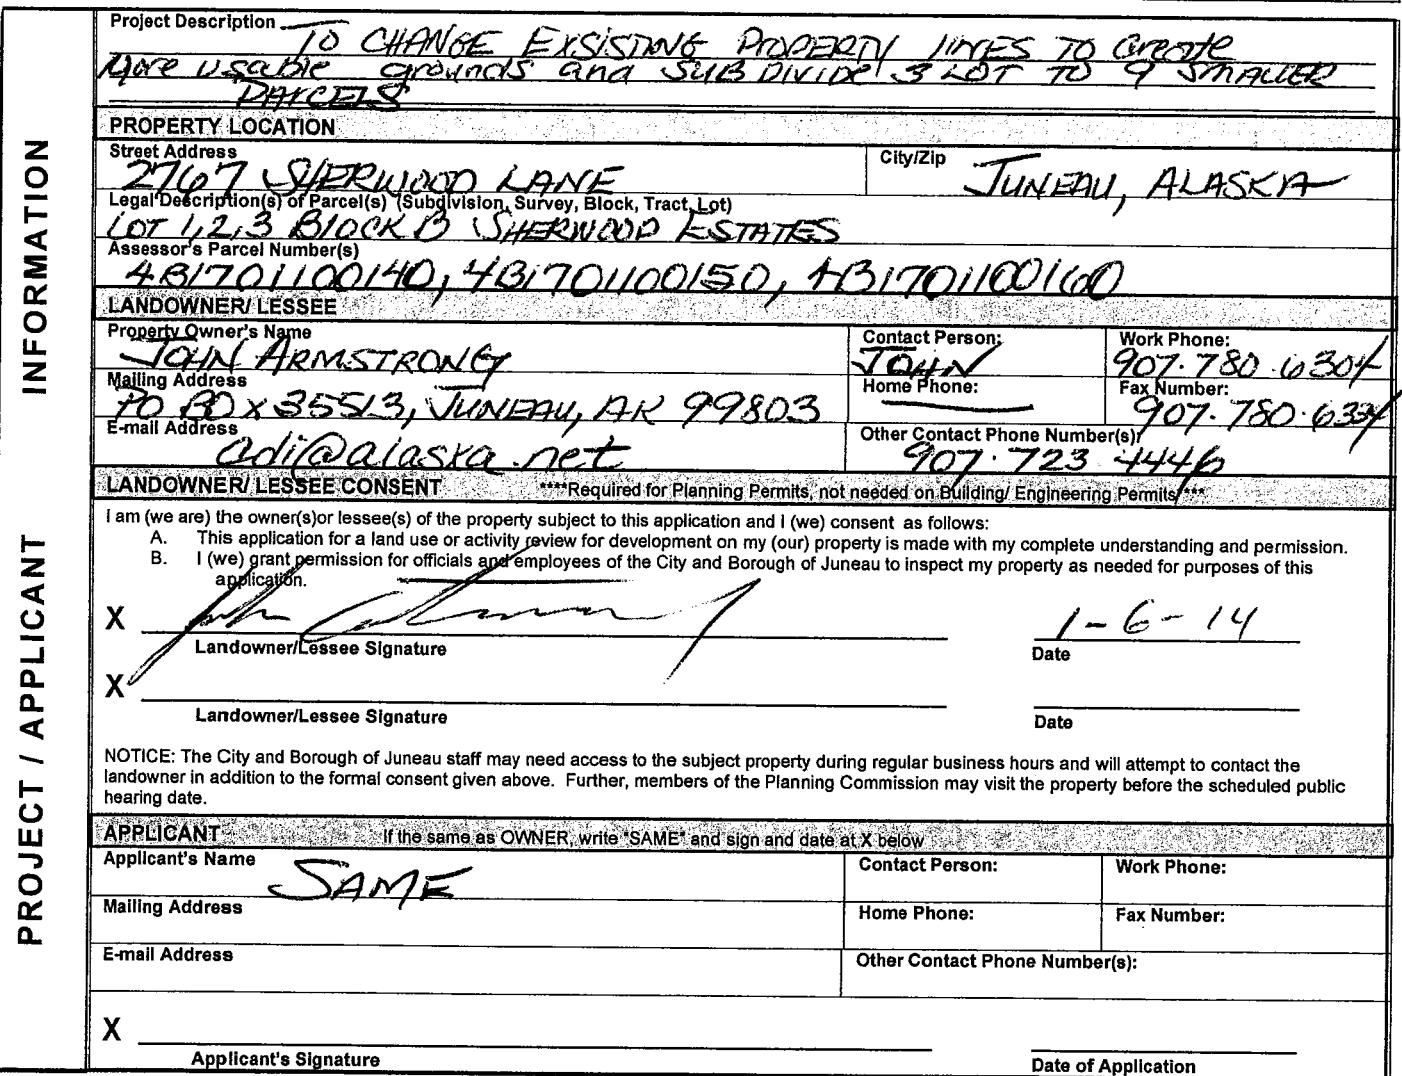 Project Description
TO CHANGE EXSISTING PROPERTY LINES TO Create
More usable grounds and SUBDIVIDE 3 LOT TO 9 SMALLER
PARCELS
PROPERTY LOCATION
Street Address
2767 SHERWOOD LANE
City/Zip
JUNEAU, ALASKA
Legal Description(s) of Parcel(s) (Subdivision, Survey, Block, Tract, Lot)
LOT 1,2,3 BlOCK B SHERWOOD ESTATES
Assessor's Parcel Number(s)
4B1701100140, 4B1701100150, 4B1701100160
LANDOWNER/ LESSEE
Property Owner's Name
JOHN ARMSTRONG
Contact Person:
JOHN
Work Phone:
907.780.6304
Mailing Address
PO BOX 35513, JUNEAU, AK 99803
Home Phone:
Fax Number:
907.780.6334
E-mail Address
adi@alaska.net
Other Contact Phone Number(s):
907.723 4446
LANDOWNER/ LESSEE CONSENT ****Required for Planning Permits, not needed on Building/ Engineering Permits****
I am (we are) the owner(s)or lessee(s) of the property subject to this application and I (we) consent as follows:
A. This application for a land use or activity review for development on my (our) property is made with my complete understanding and permission.
B. I (we) grant permission for officials and employees of the City and Borough of Juneau to inspect my property as needed for purposes of this
application.
X
1-6-14
Landowner/Lessee Signature
Date
X
Landowner/Lessee Signature
Date
NOTICE: The City and Borough of Juneau staff may need access to the subject property during regular business hours and will attempt to contact the
landowner in addition to the formal consent given above. Further, members of the Planning Commission may visit the property before the scheduled public
hearing date.
APPLICANT If the same as OWNER, write "SAME" and sign and date at X below
Applicant's Name
SAME
Contact Person:
Work Phone:
Mailing Address
Home Phone:
Fax Number:
E-mail Address
Other Contact Phone Number(s):
X
Applicant's Signature
Date of Application
PROJECT / APPLICANT INFORMATION